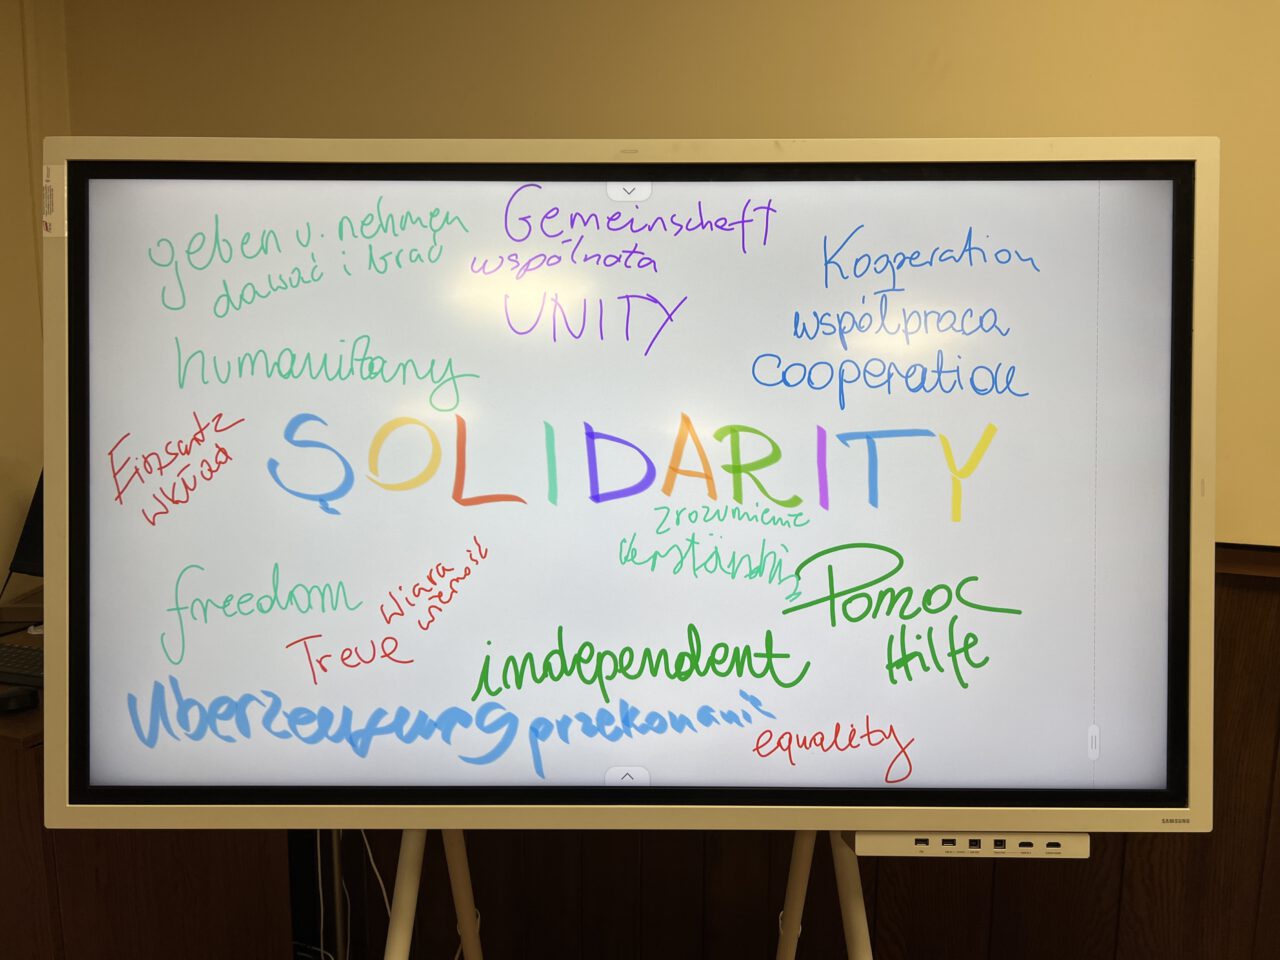 geben u. nehmen
dawać i brać
Gemeinschaft
wspólnota
UNITY
Kooperation
współpraca
cooperation
humanitany
Einsatz
wkład
SOLIDARITY
zrozumienie
Verständnis
freedom
wiara
wierność
Treue
independent
Pomoc
Hilfe
Überzeugung przekonanie
equality
SAMSUNG